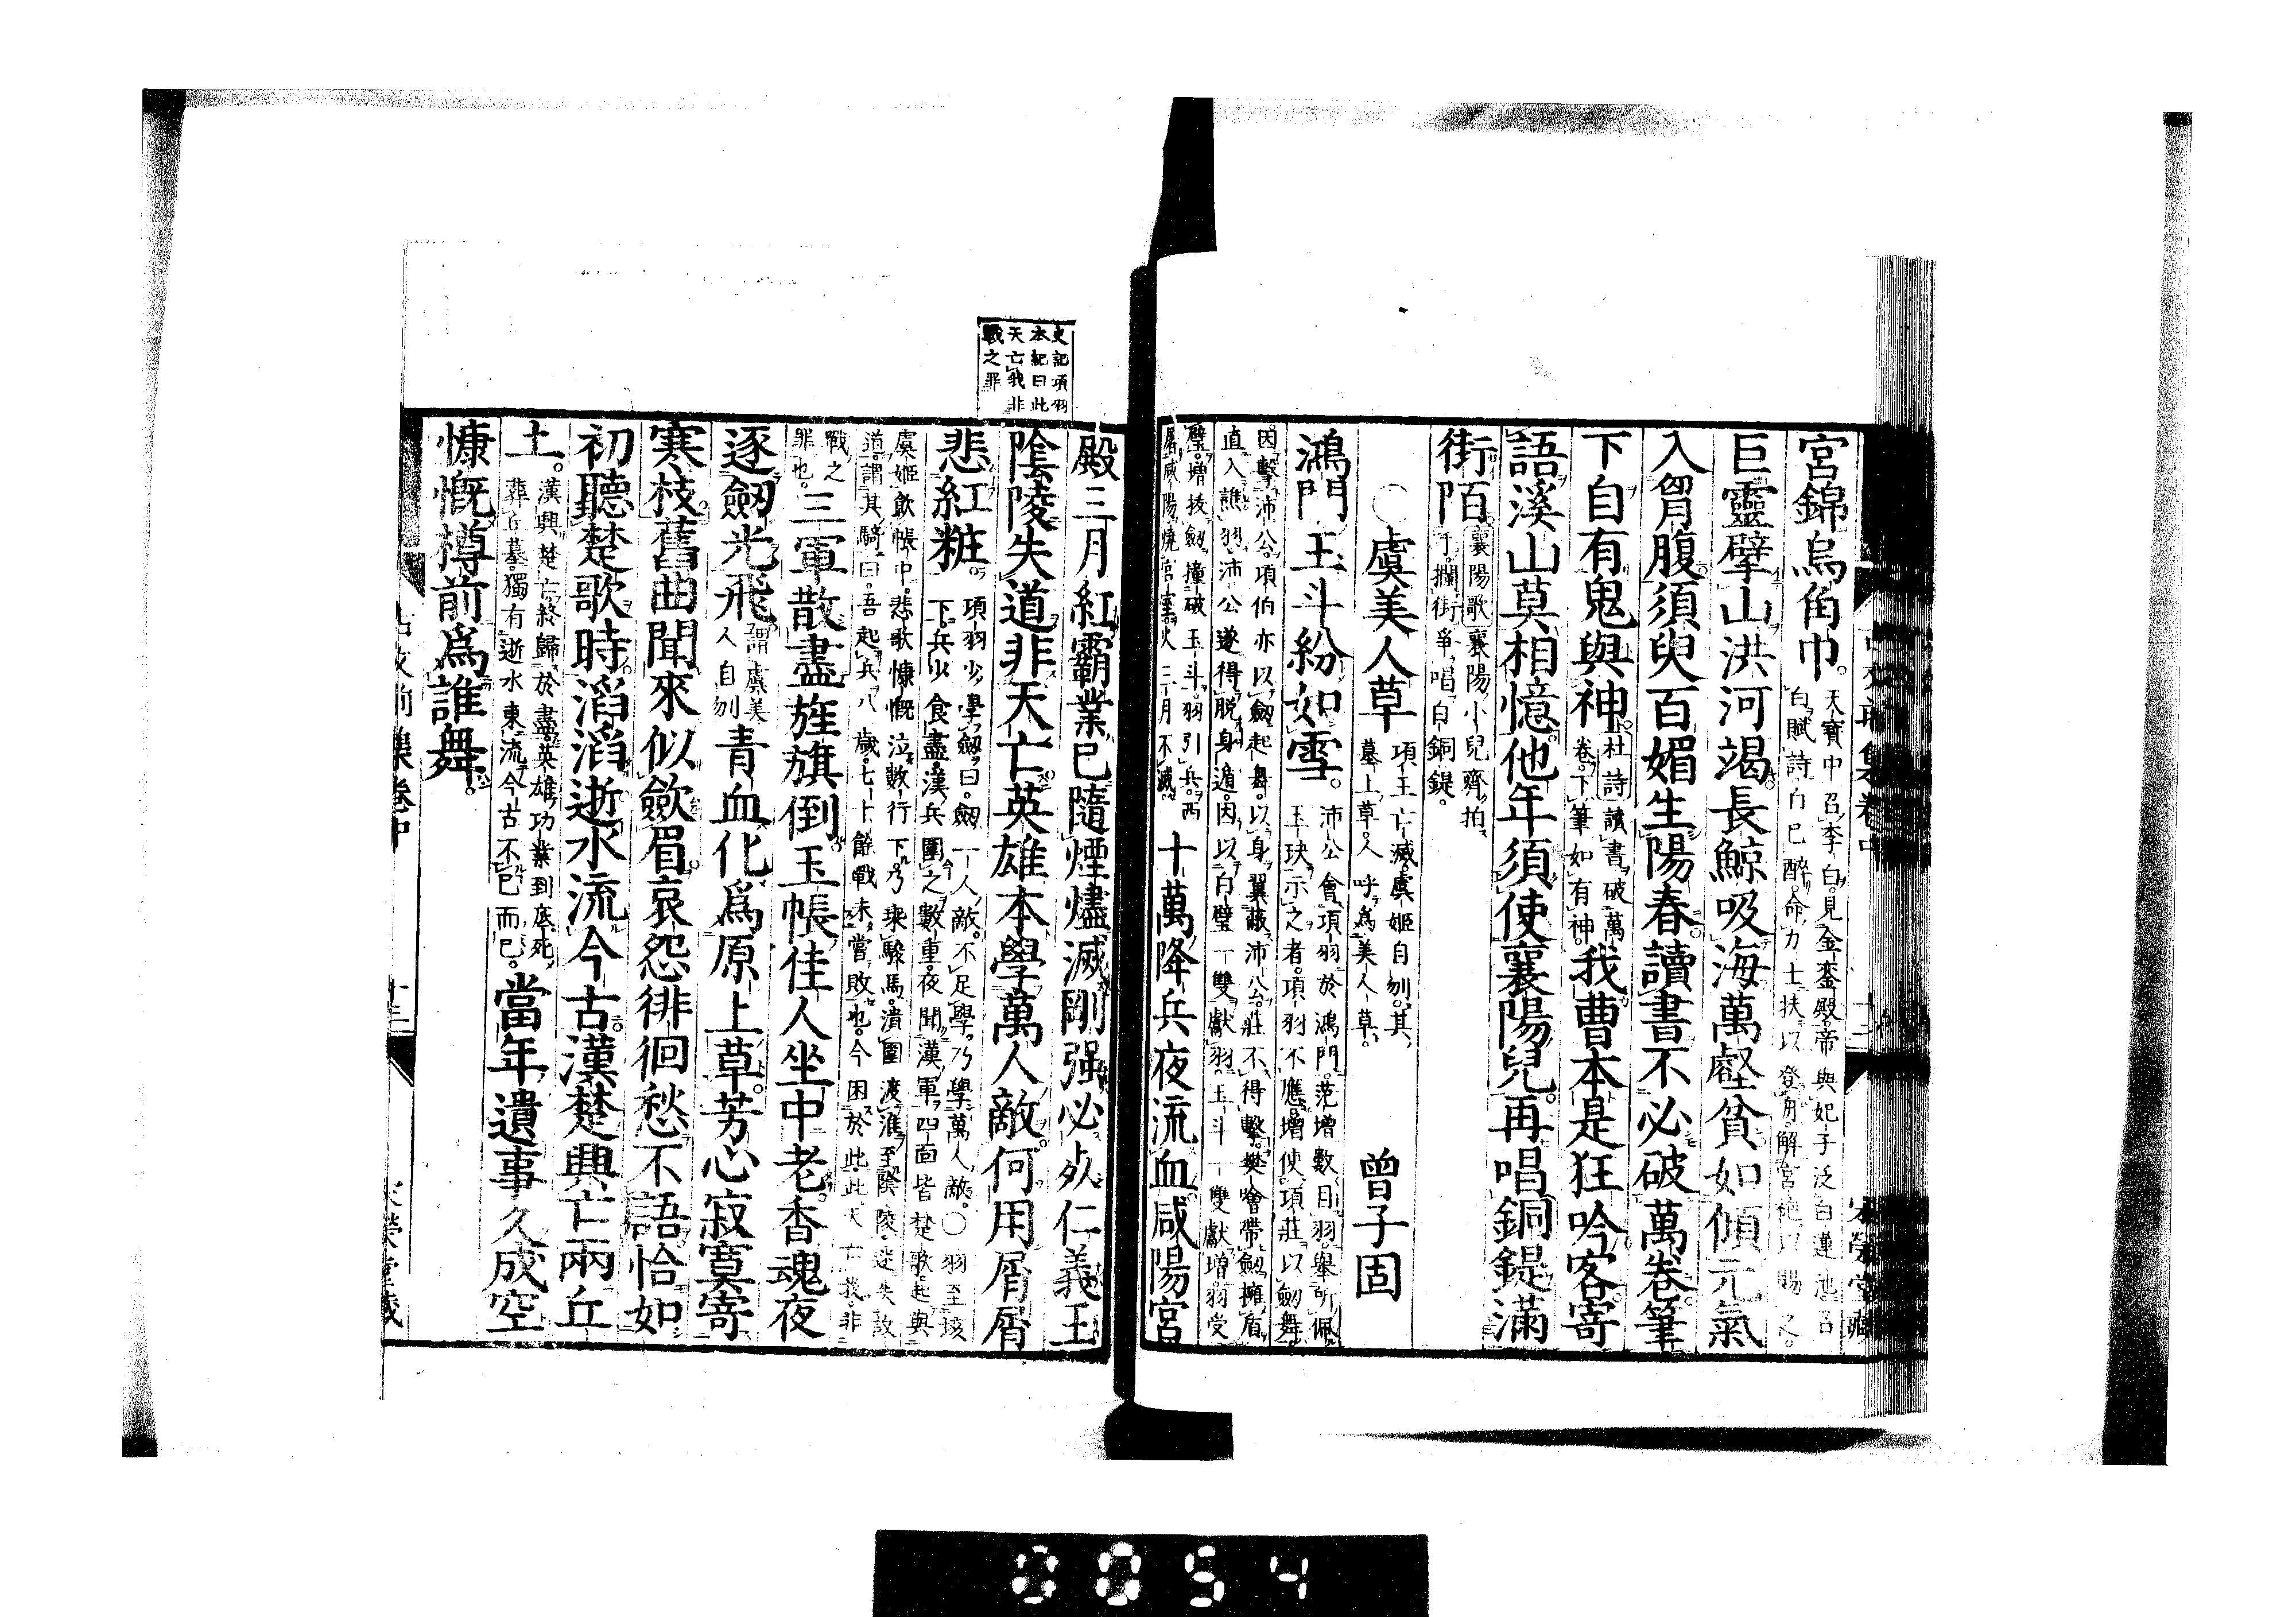 宮錦烏角巾。天寳中召李白。見金鑾殿。帝與妃子泛白蓮池。召
白賦詩白已醉。命力士扶以登舟。解宮袍以賜之。
巨靈擘山洪河竭。長鯨吸海萬壑貧。如傾元氣
入胷腹。須臾百媚生陽春。讀書不必破萬卷。筆
下自有鬼與神。杜詩讀書破萬
卷。下筆如有神。我曹本是狂吟客。寄
語溪山莫相憶。他年須使襄陽兒。再唱銅鍉滿
街陌。襄陽歌襄陽小兒齊拍
手。攔街爭唱白銅鍉。
○虞美人草 項王亡滅。虞姬自刎。其
墓上草。人呼爲美人草。 曾子固
鴻門玉斗紛如雪。沛公會項羽於鴻門。范增數目羽。舉所佩
玉玦示之者。項羽不應。增使項莊以劔舞。
因擊沛公。項伯亦以劔起舞。以身翼蔽沛公。莊不得擊。樊噲帶劔擁盾。
直入譙羽。沛公遂得脱身遁。因以白璧一雙獻羽。玉斗一雙獻增。羽受
璧。增拔劔撞破玉斗。羽引兵。西
屠咸陽燒宮室火三月不滅。十萬降兵夜流血。咸陽宮
殿三月紅。霸業已隨煙燼滅。剛强必死仁義王。
陰陵失道非天亡。英雄本學萬人敵。何用屑屑
悲紅粧。項羽少學劔。曰。劔一人敵。不足學。乃學萬人敵。○羽至垓
下。兵少食盡。漢兵圍之數重。夜聞漢軍四面皆楚歌。起與
虞姬飲帳中。悲歌慷慨。泣數行下。乃乘駿馬。潰圍渡淮。至陰陵。迷失故
道。謂其騎曰。吾起兵八歲。七十餘戰。未嘗敗也。今困於此。此天亡我。非
戰之
罪也。三軍散盡旌旗倒。玉帳佳人坐中老。香魂夜
逐劔光飛。謂虞美
人自刎青血化爲原上草。芳心寂寞寄
寒枝。舊曲聞來似歛眉。哀怨徘徊愁不語。恰如
初聽楚歌時。滔滔逝水流今古。漢楚興亡兩丘
土。漢興楚亡終歸於盡。英雄功業到底死
葬丘墓。獨有逝水東流今古不已而已。當年遺事久成空
慷慨樽前爲誰舞。
史記項羽
本紀曰此
天亡我非
戰之罪
古文前集卷中
十三
0054